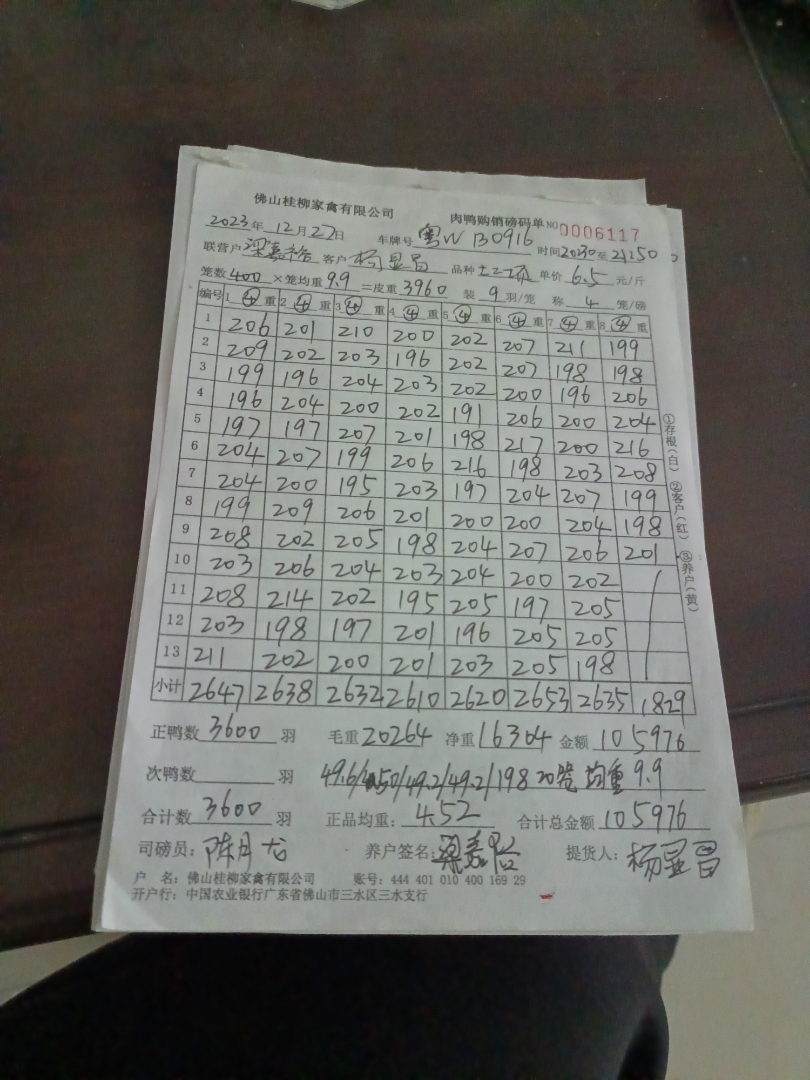 佛山桂柳家禽有限公司 肉鸭购销磅码单 NO 0006117
2023年 12月27日 车牌号 粤W B0916 时间2030至21150
联营户 梁嘉 客户 杨显昌 品种 单价 6.5 元/斤
笼数 400 ×笼均重 9.9 =皮重 3960 装 9 羽/笼 称 4 笼/磅
编号 1 ④ 重 2 ④ 重 3 ④ 重 4 ④ 重 5 ④ 重 6 ④ 重 7 ④ 重 8 ④ 重
1 206 201 210 200 202 207 211 199
2 209 202 203 196 202 207 198 198
3 199 196 204 203 202 200 196 206
4 196 204 200 202 191 206 200 204
5 197 197 207 201 198 217 200 216
6 204 207 199 206 216 198 203 208
7 204 200 195 203 197 204 207 199
8 199 209 206 201 200 200 204 198
9 208 202 205 198 204 207 206 201
10 203 206 204 203 204 200 202
11 208 214 202 195 205 197 205
12 203 198 197 201 196 205 205
13 211 202 200 201 203 205 198
小计 2647 2638 2632 2610 2620 2653 2635 1829
①存根(白) ②客户(红) ③养户(黄)
正鸭数 3600 羽 毛重 20264 净重 16304 金额 105976
次鸭数 羽 49.6/50/49.2/49.2/198 20笼 均重 9.9
合计数 3600 羽 正品均重: 4.52 合计总金额 105976
司磅员: 陈月 养户签名: 梁嘉 提货人: 杨显昌
户 名: 佛山桂柳家禽有限公司 账号: 444 401 010 400 169 29
开户行: 中国农业银行广东省佛山市三水区三水支行